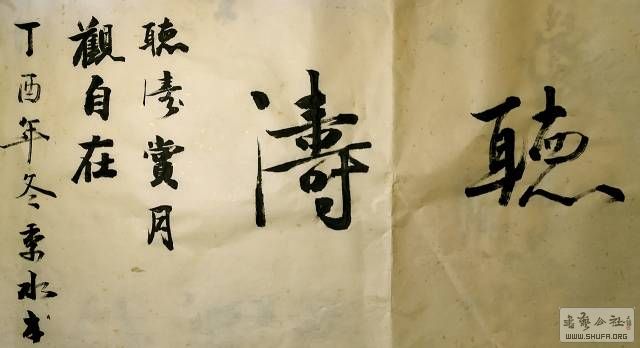 聽濤
聽濤賞月
觀自在
丁酉年冬季水書
書藝公社
WWW.SHUFA.ORG